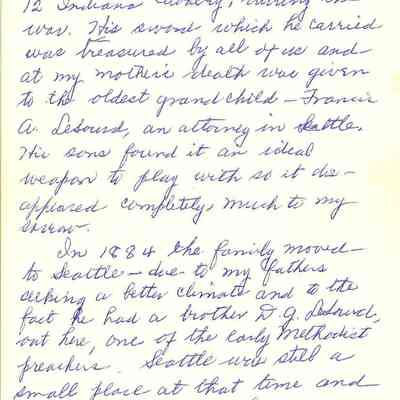 12 Indiana Cavalry, during the
war. His sword which he carried
was treasured by all of us and
at my mother's death was given
to the oldest grandchild - Francis
A. LeSourd, an attorney in Seattle.
His sons found it an ideal
weapon to play with so it dis-
appeared completely, much to my
sorrow.
In 1884 the family moved
to Seattle - due to my fathers
seeking a better climate and to the
fact he had a brother D. G. LeSourd,
out here, one of the early Methodist
preachers. Seattle was still a
small place at that time and